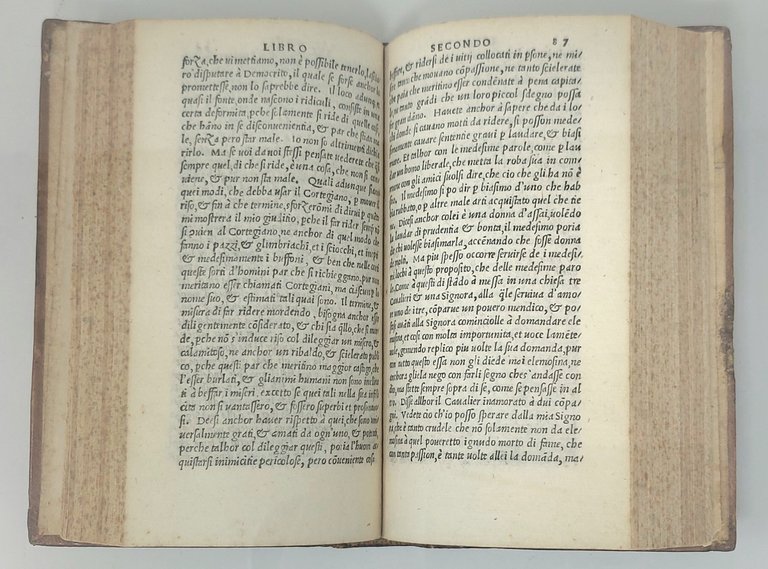 LIBRO
forza, che vi mettiamo, non è possibile tenerlo, lascia
ro disputare à Democrito, il quale se forse anchor lo
promettesse, non lo saprebbe dire. Il loco adunque, &
quasi il fonte, onde nascono i ridiculi, consiste in una
certa deformità, pche solamente si ride di quelle cose,
che hāno in se disconvenientia, & par che stian ma
le, senza però star male. Io non so altrimenti dichia
rirlo. Ma se voi da voi stessi pensate vederete che qua
sempre quel, di che si ride, è una cosa, che non si con
viene, & pur non sta male. Quali adunque siano
quei modi, che debba usar il Cortegiano, p mover il
riso, & fin à che termine, sforzerōmi di dirvi p quāto
mi mostrera il mio giuditio, pche il far rider sempre nō
si cōvien al Cortegiano, ne anchor di quel modo che
fanno i pazzi, & gl'imbriachi, et i sciocchi, et inepti
& medesimamente i buffoni, & ben che nelle corti
queste sorti d'homini par che si richieggano, pur non
meritano esser chiamati Cortegiani, ma ciascun p lo
nome suo, & estimati tali quai sono. Il termine, &
misura di far ridere mordendo, bisogna anchor esser
diligentemente cōsiderato, & chi sia q̄llo, che si mor
de, pche nō s'induce riso col dileggiar un misero, &
calamitoso, ne anchor un ribaldo, & scielerato publi
co, pche questi par che meritino maggior castigo che
l'esser burlati, & gli animi humani non sono inclina
ti à beffar i miseri, excetto se quei tali nella sua infeli
cità non si vantassero, & fossero superbi et prosontuo
si. Deesi anchor haver rispetto à quei, che sono uni
versalmente grati, & amati da ogn'uno, & potenti,
perche talhor col dileggiar questi, poria l'huom ac
quistarsi inimicitie pericolose, pero cōveniente cosa
SECONDO 87
beffare, & ridersi de i vitij collocati in psone, ne mi
sere tanto che movano cōpassione, ne tanto scielerate
che paia che meritino esser condēnate à pena capita
le, ne tanto grādi che un loro piccol sdegno possa
far gran dāno. Havete anchor à sapere che da i lo
chi donde si cavano motti da ridere, si posson mede
simamente cavare sententie gravi p laudare, & bias
mare. Et talhor con le medesime parole, come p lau
dar un homo liberale, che metta la roba sua in com
mun con gli amici suolsi dire, che cio che gli ha nō è
suo. Il medesimo si po dir p biasimo d'uno che hab
bia rubbato, o p altre male arti acquistato quel che tie
ne. Dicesi anchor colei è una donna d'assai, volēdo
la laudar di prudentia & bontà, il medesimo poria
dir chi volesse biasimarla, accēnando che fosse donna
de molti. Ma piu spesso occorre servirse de i medesi
mi lochi à questo proposito, che delle medesime paro
le. Come à questi dì stādo à messa in una chiesa tre
Cavalieri & una Signora, alla q̄le serviva d'amo
re uno de i tre, cōparve un povero mendico, & po
stosi avāti alla Signora cominciolle à domandare ele
mosina, et così con molta importunità, et voce lamēte
vole, gemendo replico piu volte la sua domanda, pur
con tutto questo essa non gli diede mai elemosina, ne
anchora gliela nego con farli segno chec'andasse con
dio, ma stette sempre sopra di se, come se pensasse in al
tro. Disse allhor il Cavalier inamorato à dui cōpa
gni. Vedete cio ch'io posso sperare dalla mia Signo
ra, che è tanto crudele che nō solamente non da ele
mosina à quel poveretto ignudo morto di fame, che
con tanta passion, è tante volte allei la domāda, ma/